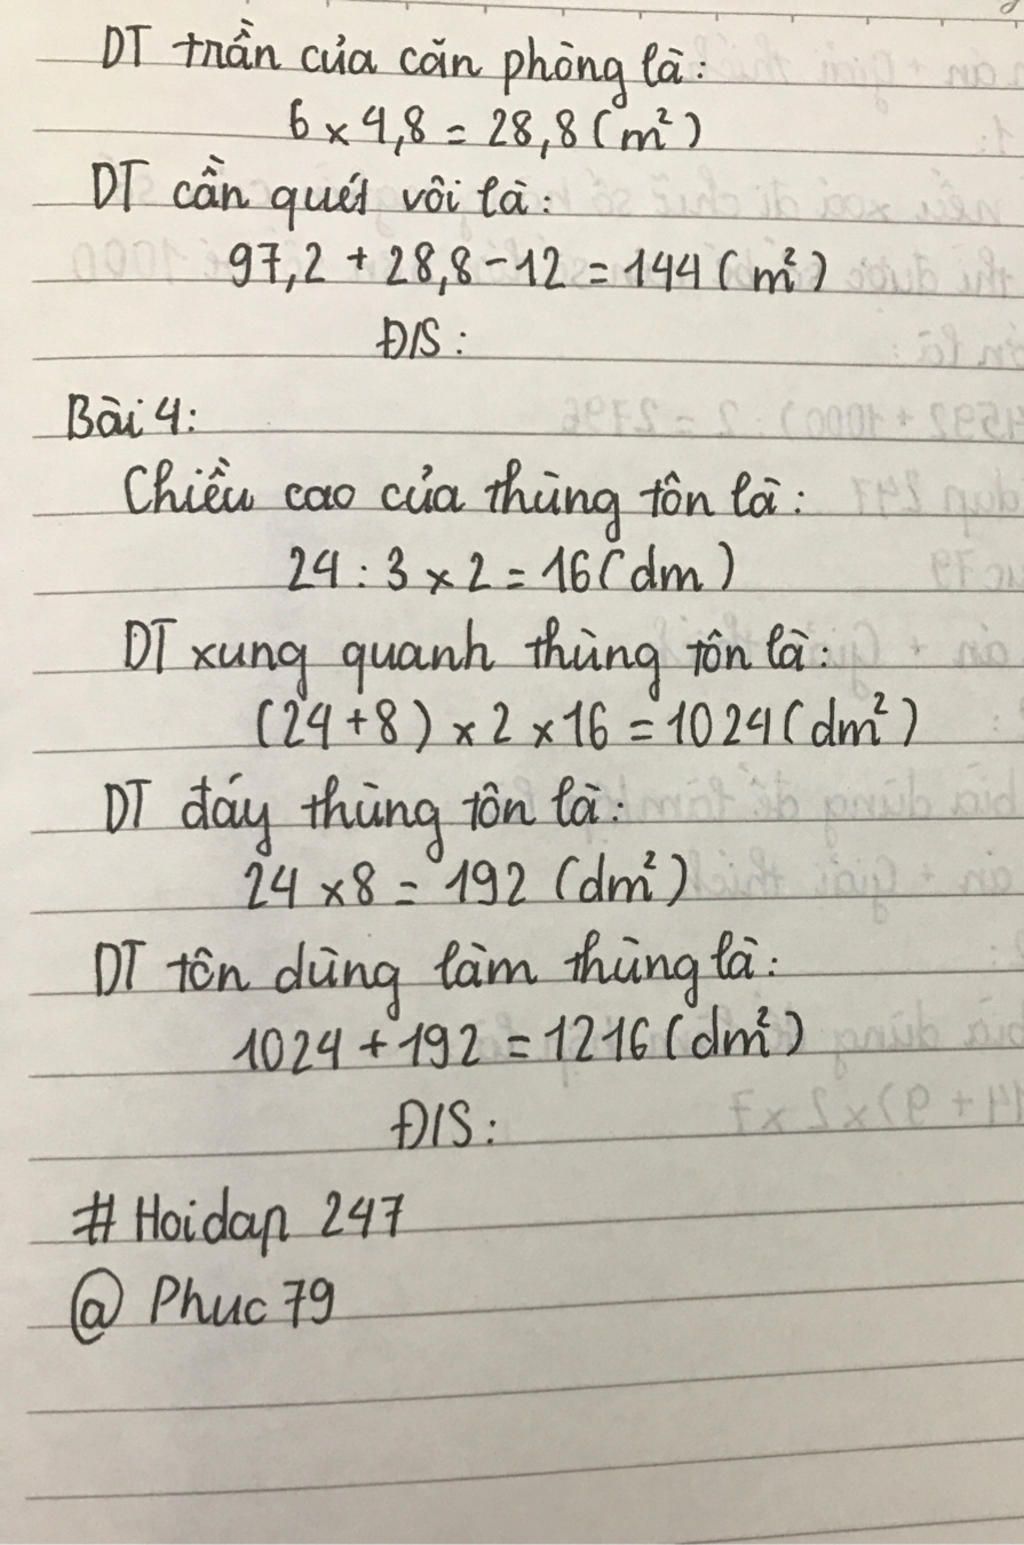 DT trần của căn phòng là:
6 x 4,8 = 28,8 (m²)
DT cần quét vôi là:
97,2 + 28,8 - 12 = 144 (m²)
Đ/S:
Bài 4:
Chiều cao của thùng tôn là:
24 : 3 x 2 = 16 (dm)
DT xung quanh thùng tôn là:
(24 + 8) x 2 x 16 = 1024 (dm²)
DT đáy thùng tôn là:
24 x 8 = 192 (dm²)
DT tôn dùng làm thùng là:
1024 + 192 = 1216 (dm²)
Đ/S:
# Hoidap 247
@ Phuc 79